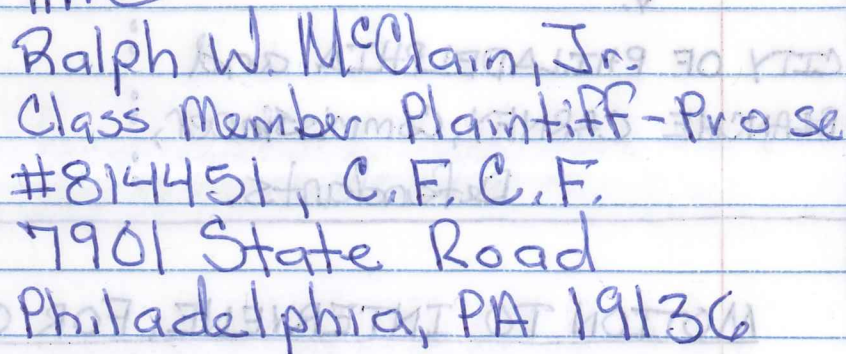 Ralph W. McClain, Jr.
Class Member Plaintiff-Pro se
#814451, C.F.C.F.
7901 State Road
Philadelphia, PA 19136